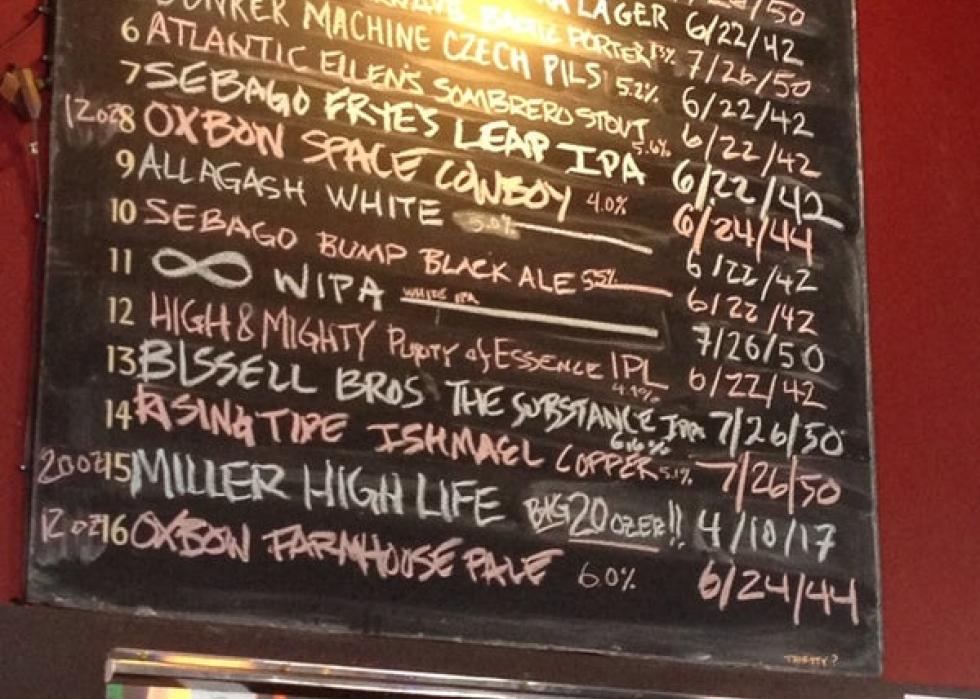 /50
LAGER 6/22/42
PORTER 7/26/50
MACHINE CZECH PILS 5.2% 6/22/42
6 ATLANTIC ELLEN'S SOMBRERO STOUT 5.6% 6/22/42
7 SEBAGO FRYE'S LEAP IPA 6/22/42
12oz 8 OXBOW SPACE COWBOY 4.0% 6/24/44
9 ALLAGASH WHITE 5.0% 6/22/42
10 SEBAGO BUMP BLACK ALE 5.5% 6/22/42
11 ∞ WIPA WHITE IPA 7/26/50
12 HIGH & MIGHTY PURITY of ESSENCE IPL 6/22/42
13 BISSELL BROS THE SUBSTANCE IPA 6.6% 7/26/50
14 RISING TIDE ISHMAEL COPPER 5.1% 7/26/50
20oz 15 MILLER HIGH LIFE BIG 20 OZER!! 4/10/17
12oz 16 OXBOW FARMHOUSE PALE 6.0% 6/24/44
THIRSTY?